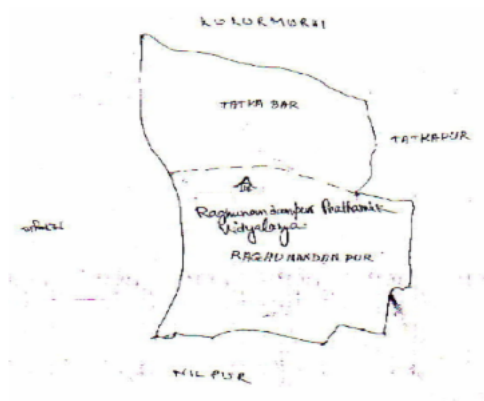 KUKURMURHI
TATKA BAR
TATKAPUR
Raghunandanpur Prathamik
Vidyalaya
RAGHUNANDANPUR
NILPUR